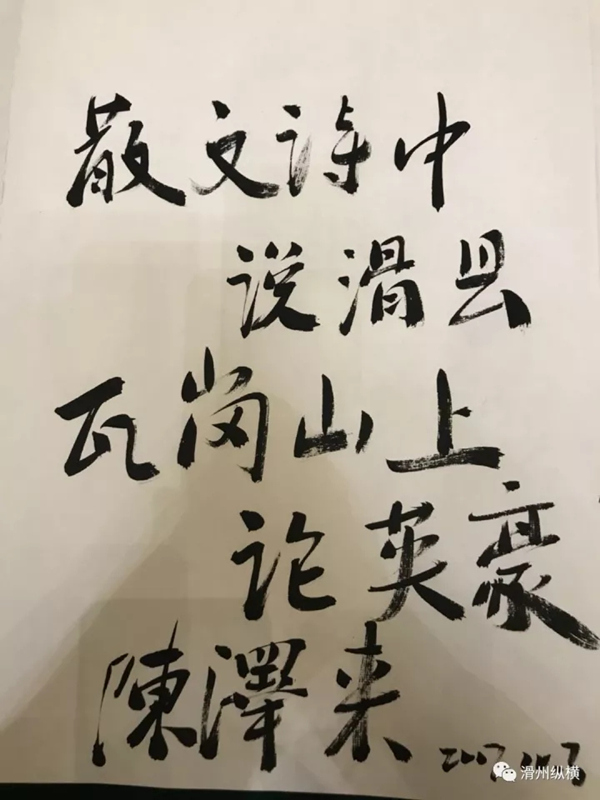 散文诗中
说滑县
瓦岗山上
论英豪
陳澤来
滑州纵横